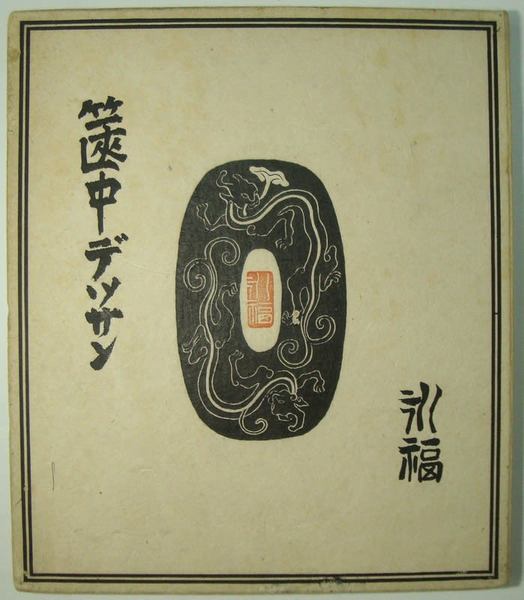 篋中デッサン
永福